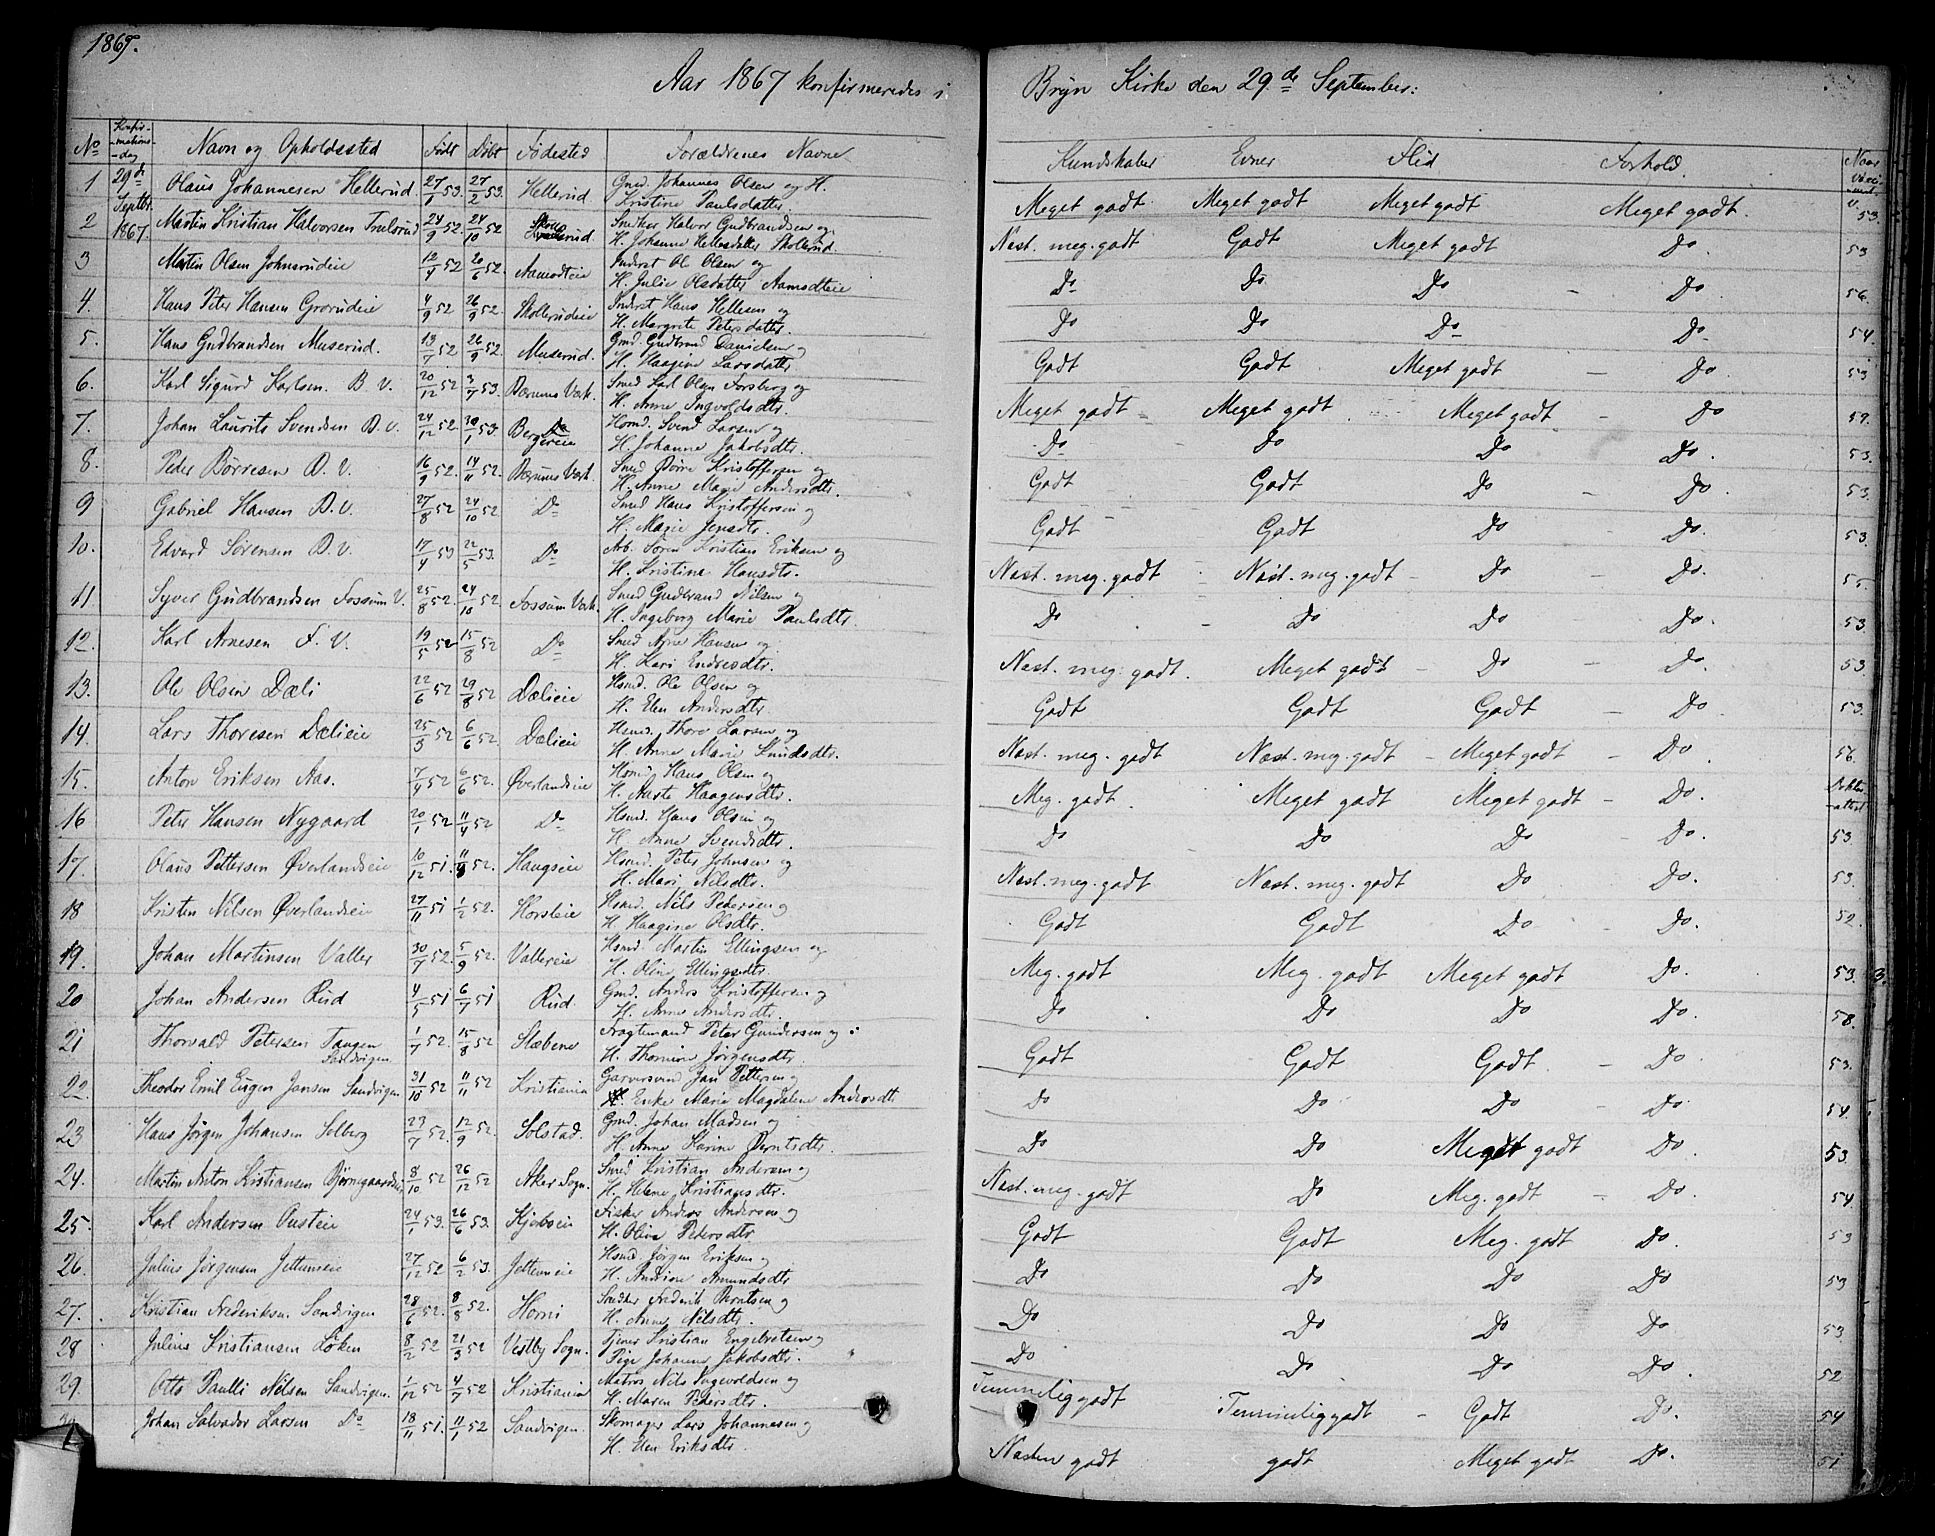 1867.
Aar 1867 konfirmeredes i Bryn Kirke den 29de September:
No Konfirmations-dag Navn og Opholdssted Født Døbt Fødested Forældrenes Navne Kundskaber Evner Flid Forhold. Naar
1 29de Septbr. 1867. Olaus Johannesen Hellerud 27/1 53. 27/2 53. Hellerud Gmd. Johannes Olsen og H. Meget godt Meget godt Meget godt Meget godt. 53.
Kristine Paulsdatter
2 Martin Kristian Halvorsen 24/9 52 24/10 52 Snedker Halvor Gudbrandsen og Næst. meg. godt Godt Meget godt Do 53
H. Johanne Hellesdatter Skollerud
3 Martin Olsen Johnsrudeie 12/4 52 20/6 52. Aamodteie Inderst Ole Olsen og Do Do Do Do 56.
H. Julie Olsdatter Aamodteie
4. Hans Peter Hansen Grorudeie 4/9 52 26/9 52. Skollerudeie Inderst Hans Hellesen og Do Do Do Do 54
H. Margrete Petersdatter.
5. Hans Gudbrandsen Muserud. 13/7 52 26/9 52. Muserud. Gmd. Gudbrand Danielsen og Godt Godt Meget godt Do 53
H. Haagine Larsdatter
6. Karl Sigurd Karlsen. B. V. 20/12 52 3/7 53. Bærums Værk. Smed Karl Olsen Forsberg og Meget godt Meget godt Meget godt Do 57.
H. Anne Ingvoldsdtr.
7. Johan Laurits Svendsen B. V. 24/12 52 30/1 53. Bergereie Homd. Svend Larsen og Do Do Do Do 53.
H. Johanne Jakobsdtr.
8. Peder Børresen B. V. 16/9 52. 14/11 52. Bærums Værk. Smed Børre Kristoffersen og Godt Godt Do Do. 53.
H. Anne Marie Andersdtr.
9 Gabriel Hansen B. V. 27/8 52 24/10 52 Do Smed Hans Kristoffersen og Godt Godt Do Do. 53.
H. Marie Jensdtr.
10. Edvard Sørensen B. V. 17/4 53 22/5 53. Do Arb. Søren Kristian Eriksen og Næst. meg. godt Næst. meg. godt Do Do. 55.
H. Kristine Hansdtr.
11 Syver Gudbrandsen Fossum V. 25/8 52. 24/10 52. Fossum Værk. Smed Gudbrand Nilsen og Do Do Do Do. 53.
H. Ingeborg Marie Paulsdtr.
12. Karl Arnesen F. V. 19/5 52 15/8 52 Do Smed Arne Hansen og Næst. meg. godt. Meget godt Do Do. 53
H. Kari Endresdtr.
13. Ole Olsen Dæli 22/6 52 29/8 52 Dælieie Hsmd. Ole Olsen og Godt Godt Godt Do 53.
H. Elen Andersdtr.
14. Lars Thoresen Dælieie 25/3 52 6/6 52. Dælieie Hsmd. Thore Larsen og Næst. meg. godt Næst. meg. godt Meget godt Do 56.
H. Anne Marie Knudsdtr.
15. Anton Eriksen Aas. 7/4 52 6/6 52. Øverlandseie Hsmd. Hans Olsen og Meg. godt. Meget godt Meget godt Do.
H. Aaste Haagensdtr.
16 Peter Hansen Nygaard 20/1 52 11/4 52 Do Hsmd. Hans Olsen og Do Do Do Do. 53.
H. Anne Svendsdtr.
17. Olaus Pettersen Øverlandseie 10/12 51. Haugseie Hsmd. Peter Johnsen og Næst. meg. godt Næst. meg. godt Do Do. 53.
H. Mari Nilsdtr.
18 Kristen Nilsen Øverlandseie 27/11 51 1/2 52. Horsleie Hsmd. Nils Pedersen og Godt Godt Do Do. 52.
H. Haagine Olsdtr.
19. Johan Martinsen Valler 30/7 52. 5/9 52. Vallereie Hsmd. Martin Ellingsen og Meg. godt Meg. godt Meget godt Do. 53.
H. Oline Ellingsdtr.
20 Johan Andersen Rud 4/5 51 6/7 51 Rud. Gmd. Anders Kristoffersen og Do Do Do Do. 58.
H. Anne Andersdtr.
21 Thorvald Petersen Tangen 1/7 52. 15/8 52 Stabene Fragtemand Peter Gundersen og Godt Godt Godt Do 53.
Sandvigen. H. Thomine Jørgensdtr.
22 Theodor Emil Eugen Jansen Sandvigen 31/10 52 11/11 52 Kristiania Garversvend Jan Pettersen og Do Do Do Do. 54.
Enke Marie Magdalene Andersdtr
23 Hans Jørgen Johansen Solberg 23/7 52. 12/9 52. Solstad. Gmd. Johan Madsen og Do Do Meget godt Do. 53.
H. Anne Karine Berntsdtr.
24. Martin Anton Kristiansen 8/10 52 26/12 52 Aker Sogn. Smed Kristian Andersen og Næst. meg. godt Do Meg. godt Do. 54
H. Helene Kristiansdtr.
25. Karl Andersen Austeie 24/1 53. 26/6 53. Kjørboeie Fisker Anders Andersen og Godt Godt Meg. godt Do. 53
H. Oline Petersdtr
26. Julius Jørgensen Jettumeie 27/12 52 6/2 53. Jettumeie Hsmd. Jørgen Eriksen og Do Do Do Do 53
H. Andrine Amundsdtr
27. Kristian Frederiksen. Sandvigen 28/6 52. 8/8 52. Horni Snedker Frederik Berntsen og Do Do Do Do 53.
H. Anne Nilsdtr.
28 Julius Kristiansen Løken 8/2 52 21/3 52 Vestby Sogn. Tjener Kristian Engebretsen og Do Do Do Do. 52
Pige Johanne Jakobsdtr.
29. Otto Paulli Nilsen Sandvigen. 1/12 52 4/7 52 Kristiania Matros Nils Ingvoldsen og Temmelig godt Temmelig godt Godt Do. 54
H. Maren Pedersdtr.
Johan Salvador Larsen Do 18/11 51. 11/1 52 Sandvigen. Skomager Lars Johannesen og Næsten godt godt Meget godt Do. 51
H. Elen Eriksdtr.